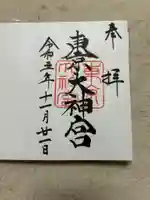 奉拝
東京大神宮
令和五年十一月廿一日